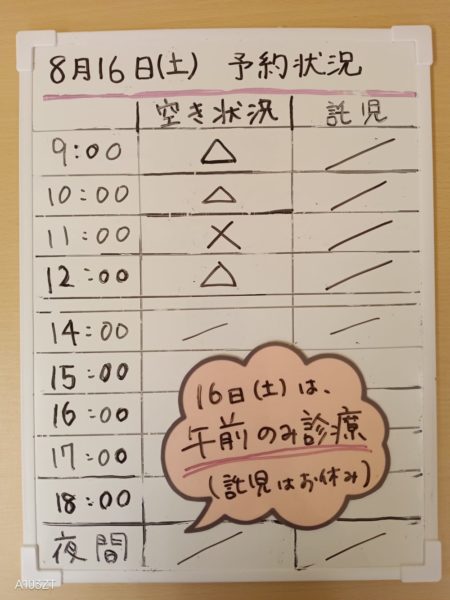 8月16日(土) 予約状況
空き状況 託児
9:00 △ ／
10:00 △ ／
11:00 × ／
12:00 △ ／
14:00 ／ ／
15:00
16:00
17:00
18:00
夜間 ／ ／
16日(土)は、
午前のみ診療
(託児はお休み)
A103ZT